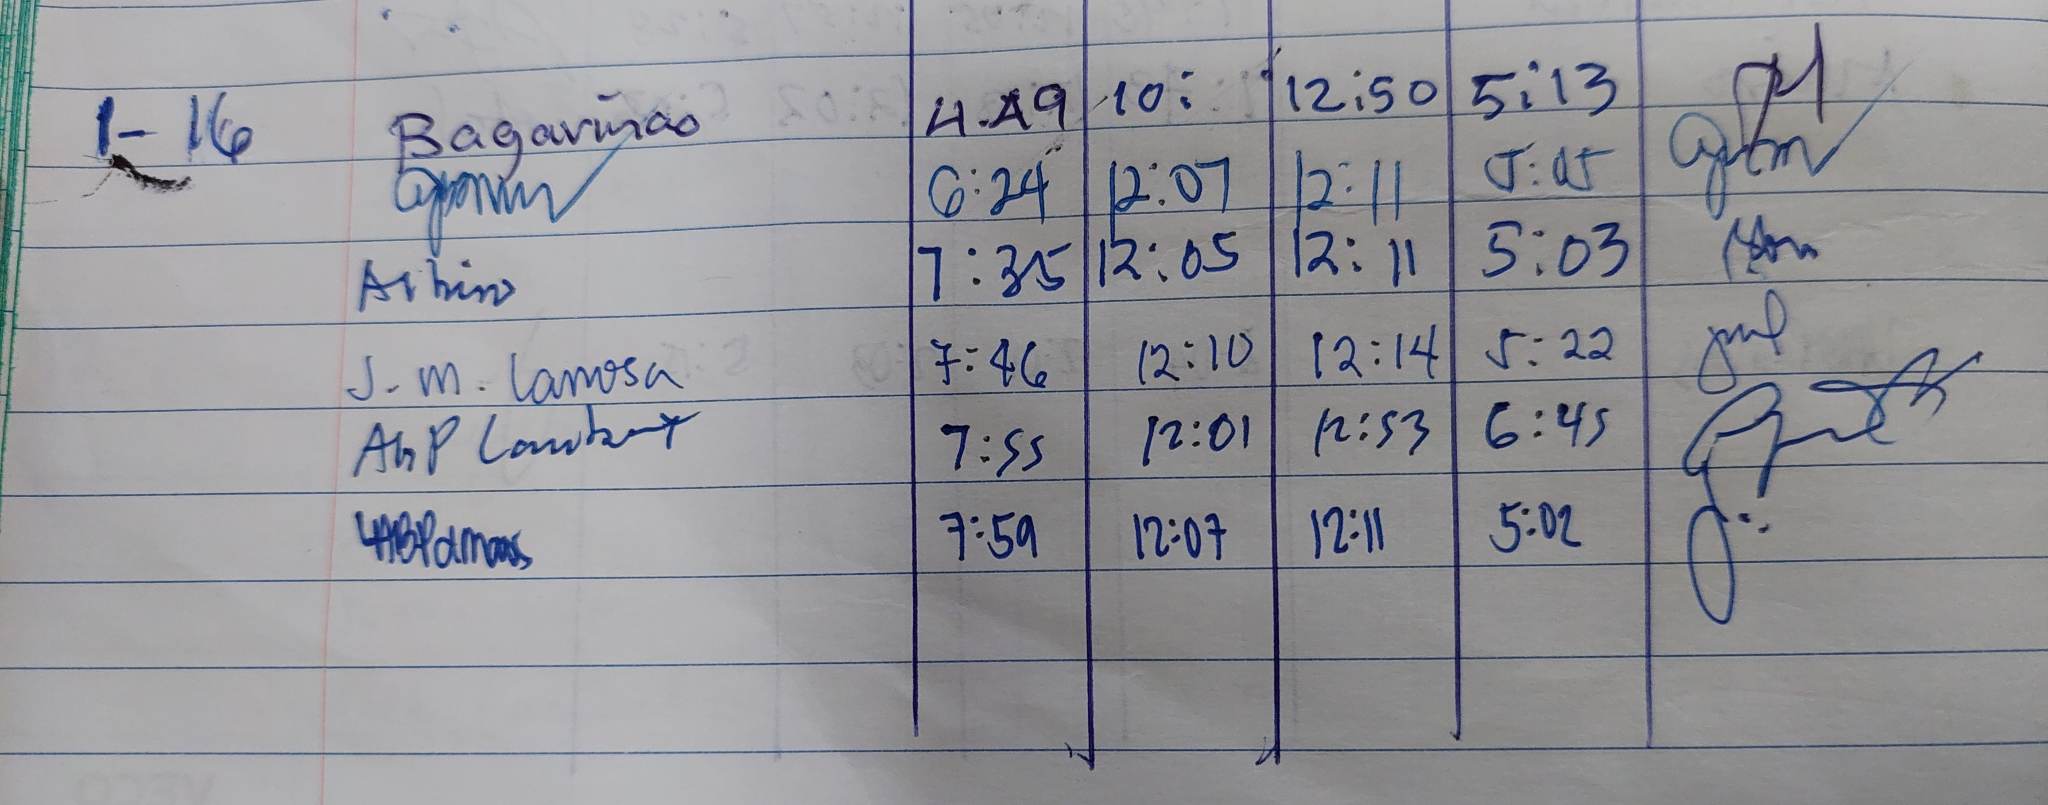 1-16 Bagariñao 4.49 10: 12:50 5:13
6:24 12:07 12:11 5:05
7:35 12:05 12:11 5:03
J. M. Lamosa 7:46 12:10 12:14 5:22
AhP 7:55 12:01 12:53 6:45
7:59 12:07 12:11 5:02